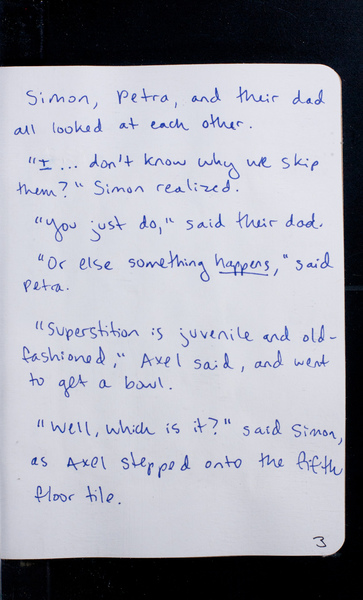 Simon, Petra, and their dad
all looked at each other.
"I ... don't know why we skip
them?" Simon realized.
"You just do," said their dad.
"Or else something happens," said
Petra.
"Superstition is juvenile and old-
fashioned," Axel said, and went
to get a bowl.
"Well, which is it?" said Simon,
as Axel stepped onto the fifth
floor tile.
3